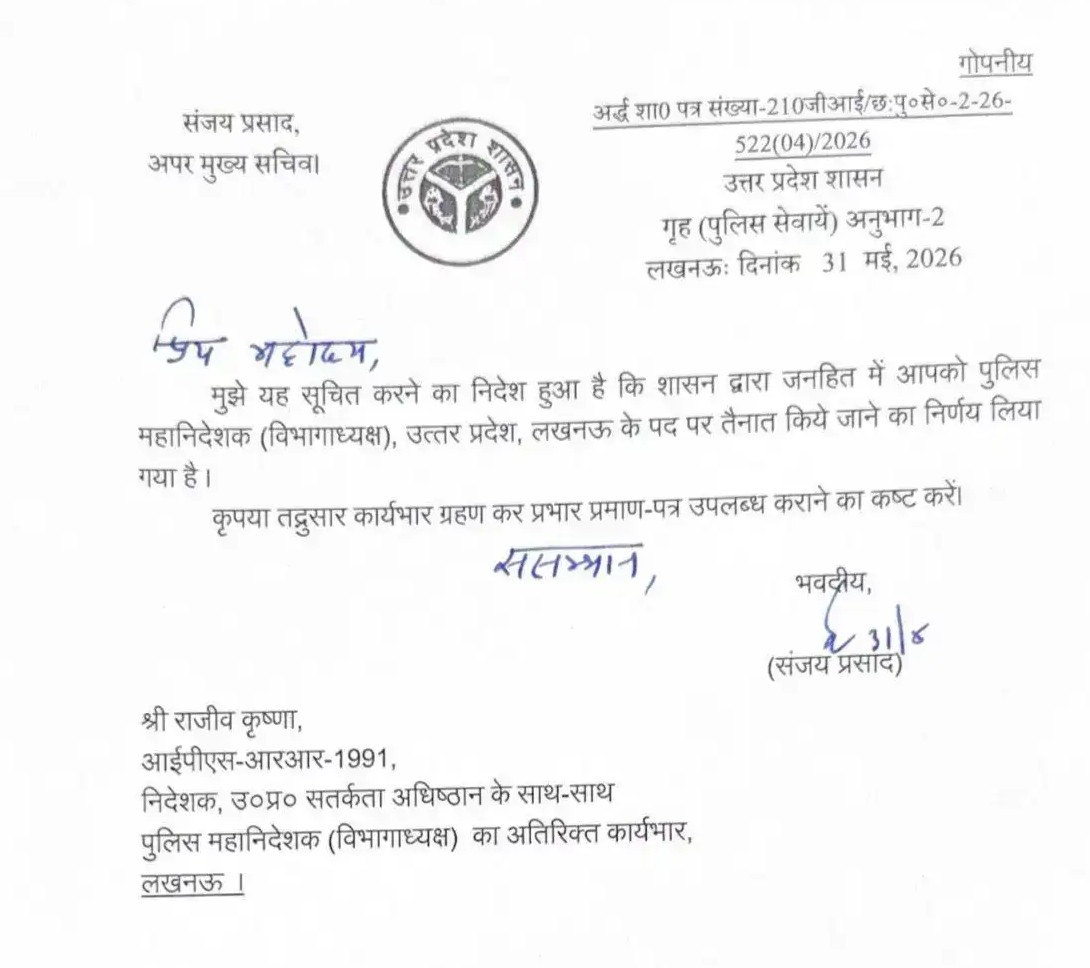 गोपनीय
संजय प्रसाद,
अपर मुख्य सचिव।
उत्तर प्रदेश शासन
अर्द्ध शा0 पत्र संख्या-210जीआई/छ:पु०से०-2-26-
522(04)/2026
उत्तर प्रदेश शासन
गृह (पुलिस सेवायें) अनुभाग-2
लखनऊः दिनांक 31 मई, 2026
प्रिय महोदय,
मुझे यह सूचित करने का निदेश हुआ है कि शासन द्वारा जनहित में आपको पुलिस
महानिदेशक (विभागाध्यक्ष), उत्तर प्रदेश, लखनऊ के पद पर तैनात किये जाने का निर्णय लिया
गया है।
कृपया तद्नुसार कार्यभार ग्रहण कर प्रभार प्रमाण-पत्र उपलब्ध कराने का कष्ट करें।
ससम्मान,
भवदीय,
31/5
(संजय प्रसाद)
श्री राजीव कृष्णा,
आईपीएस-आरआर-1991,
निदेशक, उ०प्र० सतर्कता अधिष्ठान के साथ-साथ
पुलिस महानिदेशक (विभागाध्यक्ष) का अतिरिक्त कार्यभार,
लखनऊ ।